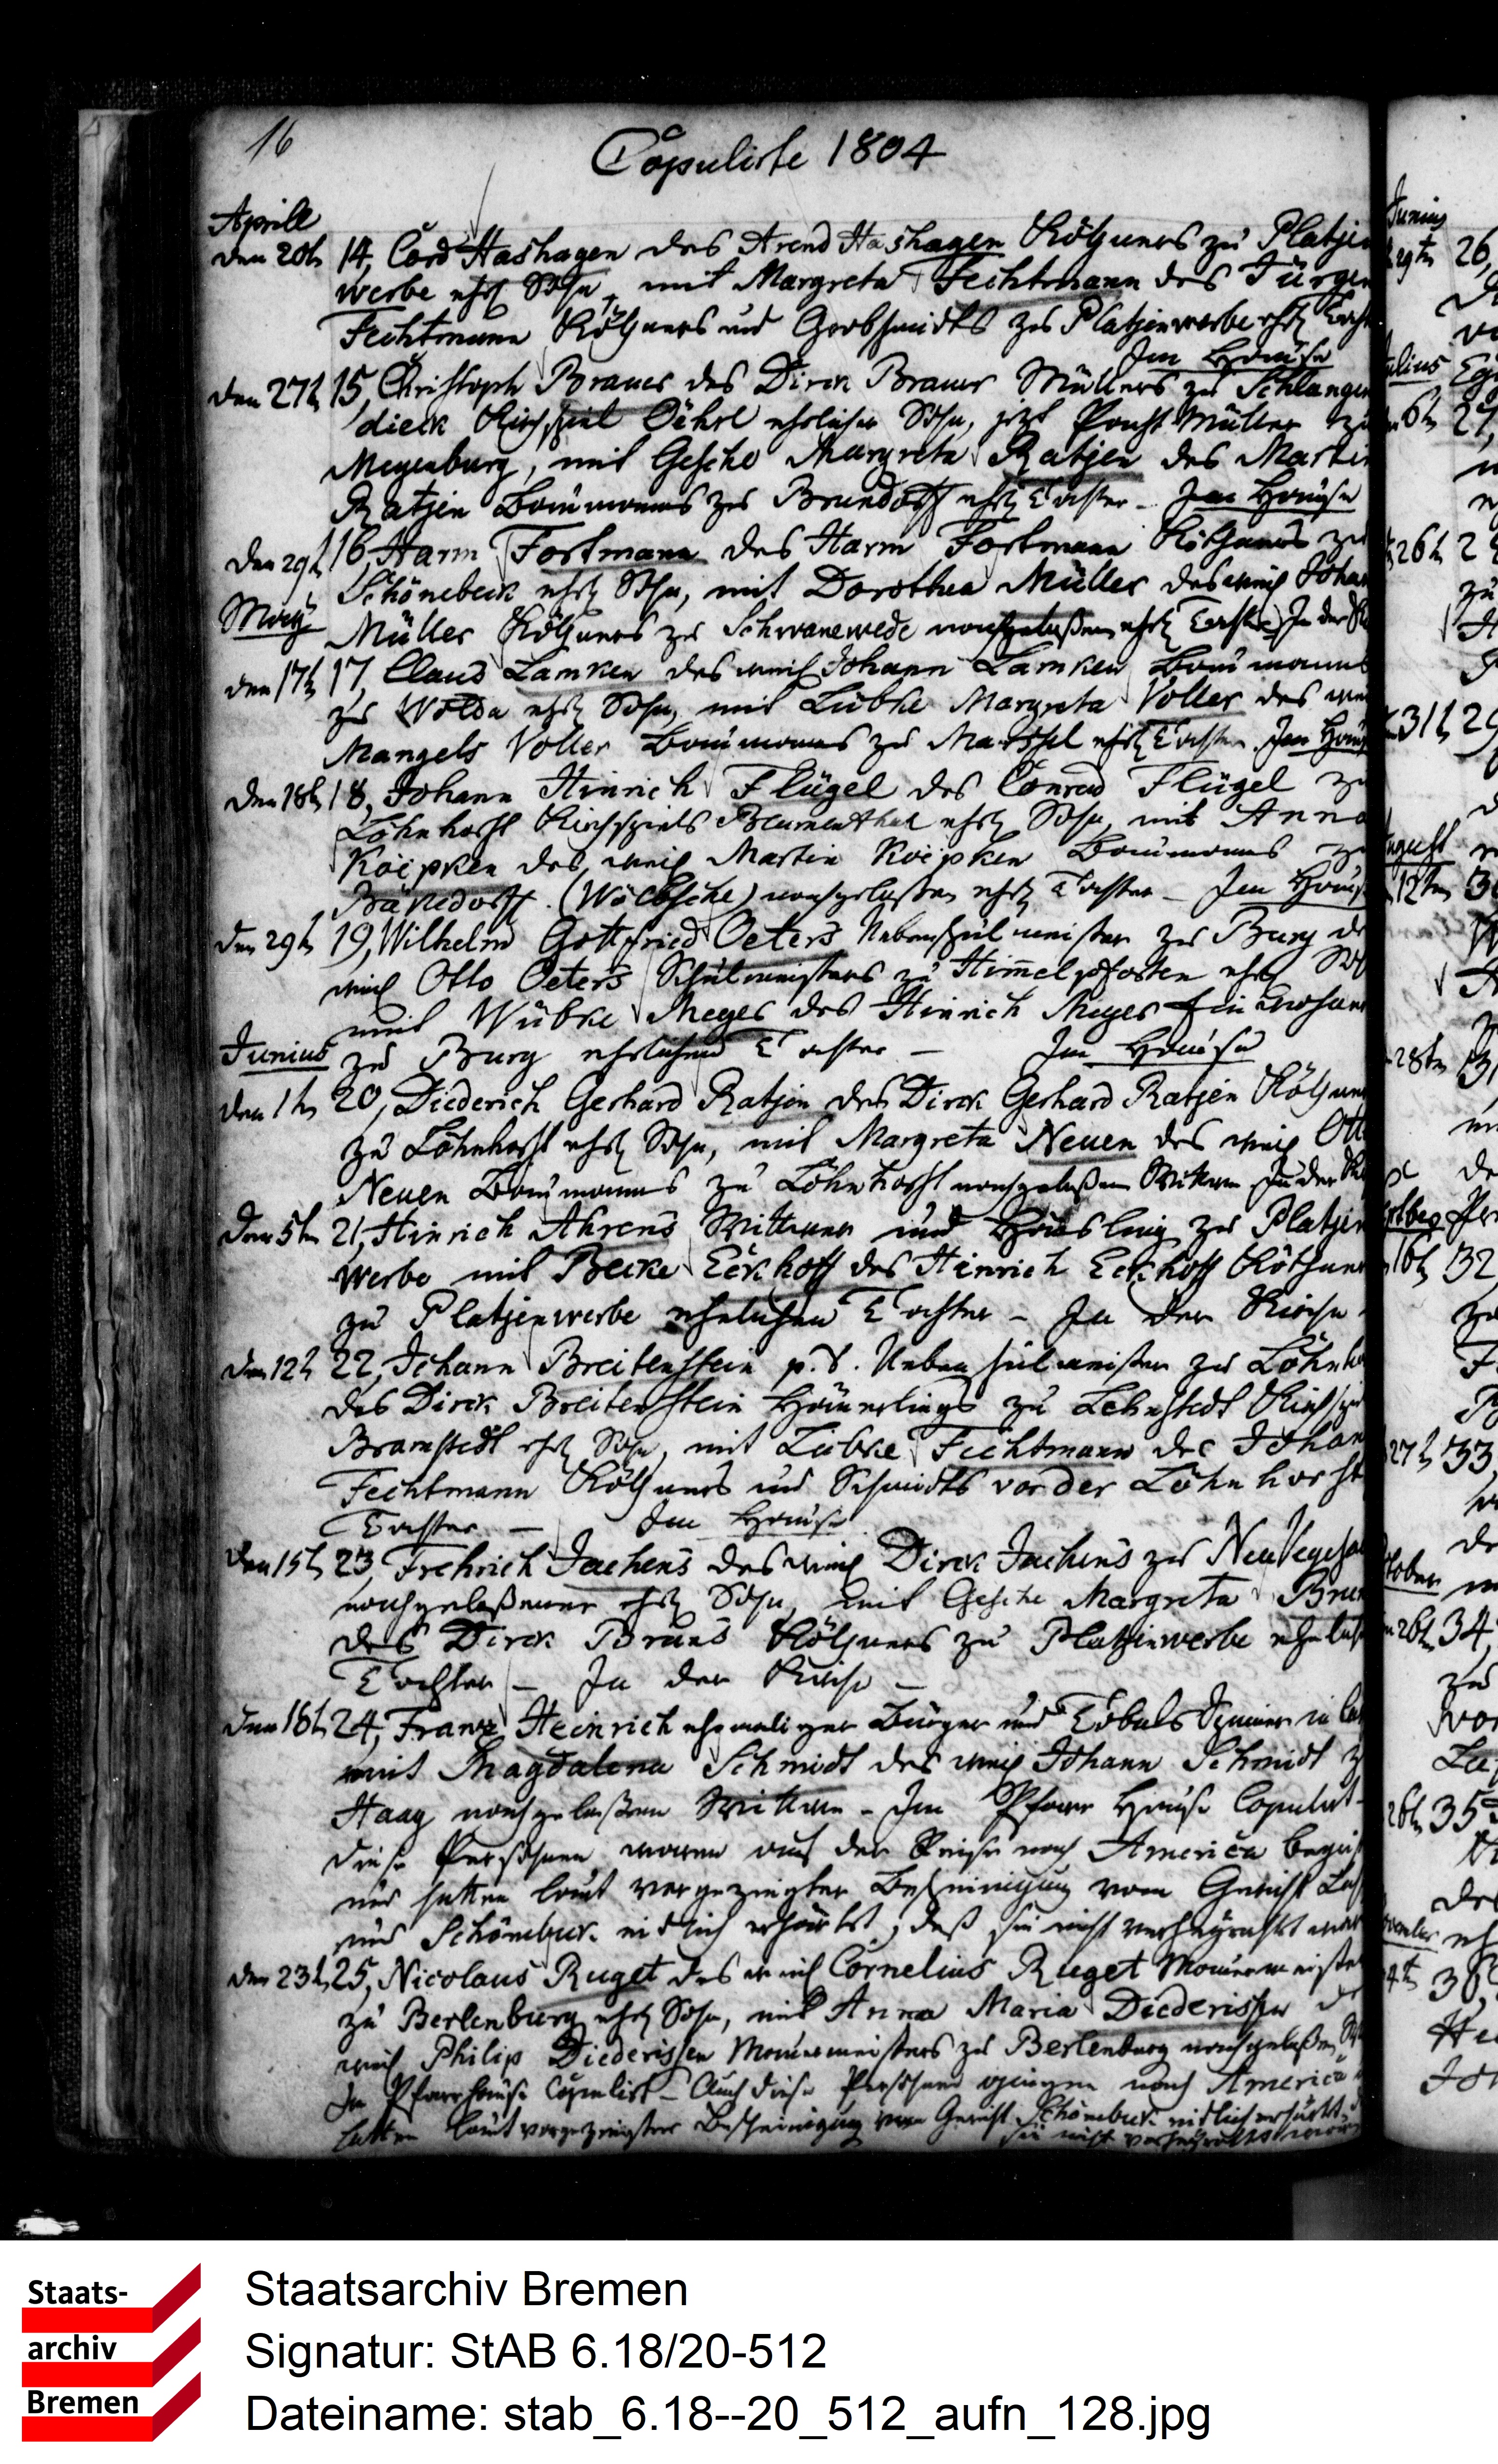 16
Copulirte 1804
Aprill
den 20t 14, Cord Hashagen des Arend Hashagen Köthners zu Platjen
werbe ehel Sohn, mit Margreta Fechtmann des Jürgen
Fechtmann Köthners und Grobschmidts zu Platjenwerbe ehel Toch
Im Hause
den 27t 15, Christoph Brauer des Dirck Brauer Müllers zu Schlangen
dieck Kirchspiel ehelicher Sohn, jetzt Pacht Müller zu
Meyenburg, mit Gesche Margreta Ratjen des Martin
Ratjen Baumanns zu Brundorff ehel Tochter - Im Hause
den 29t 16, Harm Fortmann des Harm Fortmann Köthners zu
Schönebeck ehel Sohn, mit Dorothea Müller des weil Johan
May
Müller Köthners zu Schwanewede nachgelaßen ehel Tochter In der
den 17t 17, Claus Lamken des weil Johann Lamken Baumanns
zu Wolda ehel Sohn, mit Lübke Margreta Voller des
Mangels Voller Baumanns zu Marssel ehel Tochter Im Hause
den 18t 18, Johann Hinrich Flügel des Conrad Flügel zu
Löhnhorst Kirchspiels Blumenthal ehel Sohn, mit Anna
Köipken des weil Martin Köipken Baumanns zu
(Wölbsche) nachgelaßen ehel Tochter - Im Hause
den 29t 19, Wilhelm Gottfried Oeters Nebenschulmeister zu Burg des
weil Otto Oeters Schulmeisters zu Himmelpforten ehel Soh
mit Wübke Meyer des Hinrich Meyer Einwohners
Junius
zu Burg ehelichen Tochter - Im Hause
den 1t 20, Diederich Gerhard Ratjen des Dirck Gerhard Ratjen Köthners
zu Löhnhorst ehel Sohn, mit Margreta Neuen des weil Otto
Neuen Baumanns zu Löhnhorst nachgelaßen Witwe In der
den 5t 21, Hinrich Ahrens Wittwer und Häusling zu Platjen
werbe mit Becke Eckhoff des Hinrich Eckhoff Köthners
zu Platjenwerbe ehelichen Tochter - In der Kirche
den 12t 22, Johann Breitenstein p.t. Nebenschulmeister zu Löhnho
des Dirck Breitenstein Häuerlings zu Lehnstedt Kirchspiel
Bramstedt ehel Sohn, mit Lübke Fechtmann des Johan
Fechtmann Köthners und Schmidts vor der Löhnhorst
Tochter - Im Hause
den 15t 23, Frehrich Jachens des weil Dirck Jachens zu Neu Vegesa
nachgelaßener ehel Sohn, mit Gesche Margreta Brun
des Dirck Bruns Köthners zu Platjenwerbe ehelich
Tochter - In der Kirche -
den 16t 24, Franz Heinrich ehemaliger Bürger und
mit Magdalena Schmidt des weil Johann Schmidt zu
Haag nachgelaßen Wittwe - Im Pfarr Hause Copulirt -
diese Persohnen waren auf der Reise nach America
und hatten laut vorgezeigter Bescheinigung vom Gericht
und Schönebeck eidlich erhärtet, daß sie nicht verheyrathet
den 23t 25, Nicolaus Ruget des weil Cornelius Ruget Mauermeister
zu Berlenburg ehel Sohn, mit Anna Maria Diederissen des
weil Philip Diederissen Mauermeisters zu Berlenburg nachgelaßen
Im Pfarrhause Copulirt - Auch diese Persohnen gingen nach America
hatten laut vorgezeigter Bescheinigung vom Gericht Schönebeck eidlich erhärtet
sie nicht verheyrathet waren
Junius
29t 26,
Julius
6t 27,
26t
31t 29
August
12t
28t
16t 32
27t 33
26t 34
26t 35
Staats-
archiv
Bremen
Staatsarchiv Bremen
Signatur: StAB 6.18/20-512
Dateiname: stab_6.18--20_512_aufn_128.jpg